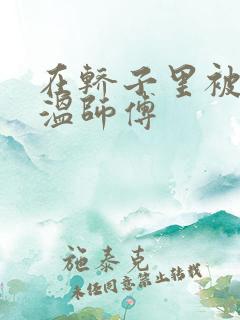 在轿子里被
温师傅
施泰克
未经同意禁止转载